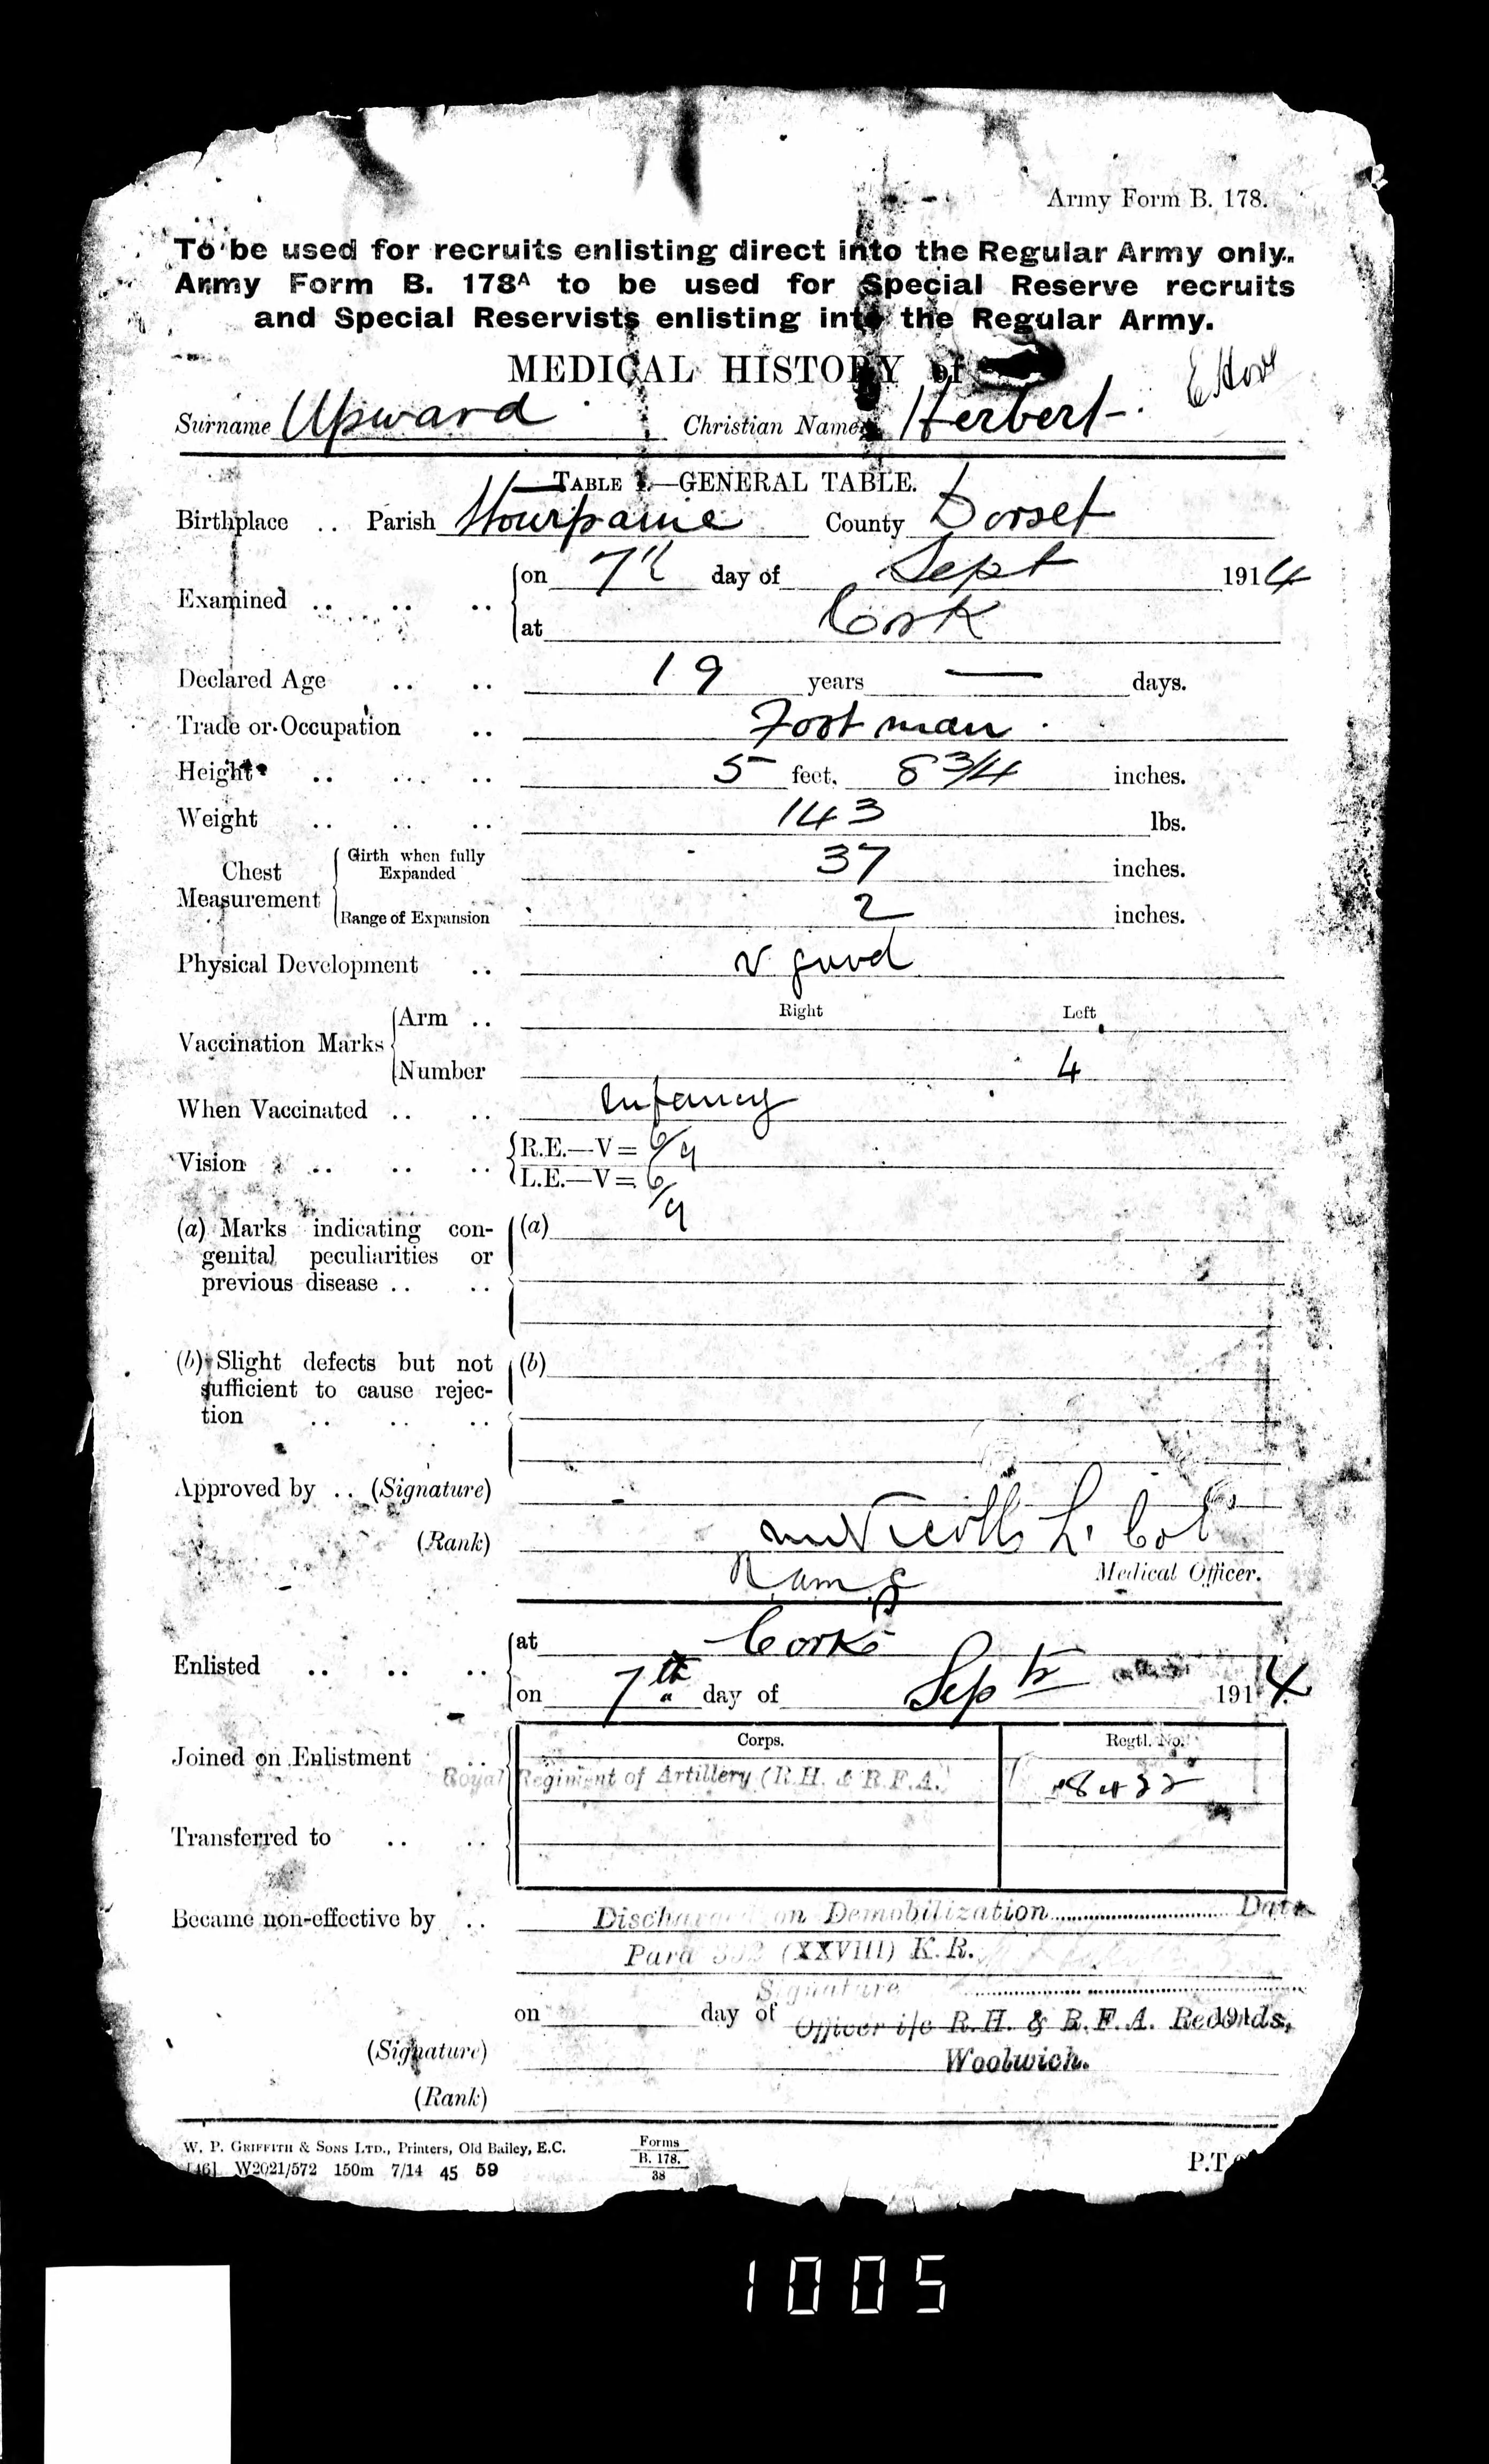 Army Form B. 178.
To be used for recruits enlisting direct into the Regular Army only.
Army Form B. 178A to be used for Special Reserve recruits
and Special Reservists enlisting into the Regular Army.
MEDICAL HISTORY of
Surname Upward Christian Name Herbert
TABLE I.—GENERAL TABLE.
Birthplace .. Parish Stourpaine County Dorset
Examined .. .. .. on 7th day of Sept 1914
at Cork
Declared Age .. .. 19 years — days.
Trade or Occupation .. Footman
Height .. .. .. 5 feet, 8 3/4 inches.
Weight .. .. .. 143 lbs.
Chest Measurement
Girth when fully Expanded 37 inches.
Range of Expansion 2 inches.
Physical Development .. v good
Right Left
Vaccination Marks Arm ..
Number 4
When Vaccinated .. .. Infancy
Vision .. .. .. R.E.—V= 6/9
L.E.—V= 6/9
(a) Marks indicating con- (a)
genital peculiarities or
previous disease .. ..
(b) Slight defects but not (b)
sufficient to cause rejec-
tion .. .. ..
Approved by .. (Signature)
(Rank) Lt Col
RAMC Medical Officer.
Enlisted .. .. .. at Cork
on 7th day of Sept 1914
Corps. Regtl. No.
Joined on Enlistment ..
Royal Regiment of Artillery (R.H. & R.F.A.)
Transferred to .. ..
Became non-effective by .. Discharged on Demobilization Date
Para 392 (XXVIII) K.R.
Signature
on day of 191
Officer i/c R.H. & R.F.A. Records,
(Signature) Woolwich.
(Rank)
W. P. GRIFFITH & SONS LTD., Printers, Old Bailey, E.C. Forms
[46] W2021/572 150m 7/14 45 59 B. 178.
38
P.T.
1005